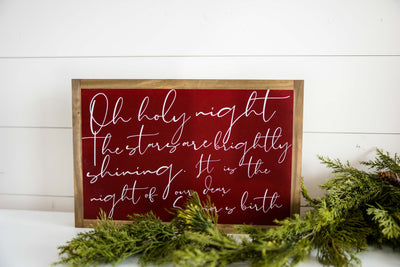 Oh holy night
the stars are brightly
shining. It is the
night of our dear
birth